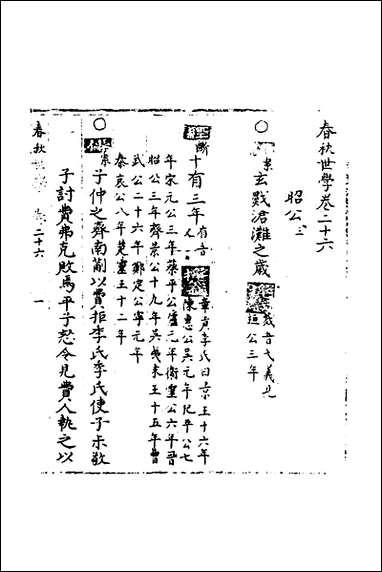 春秋世學卷二十六
昭公
玄黓涒灘之歲
黓音弋義見
桓公三年
十有三年
有音
又
章貢李氏曰景王十六年
陳惠公吳元年杞平公七
年宋元公三年蔡平公廬元年衛靈公六年晉
昭公三年齊景公十九年吳夷末王十五年曹
武公二十六年鄭定公寧元年
秦哀公八年楚靈王十二年
子仲之齊南蒯以費拒季氏季氏使子未敬
子討費弗克敗焉平子怒令見費人執之以
春秋
二十六
一